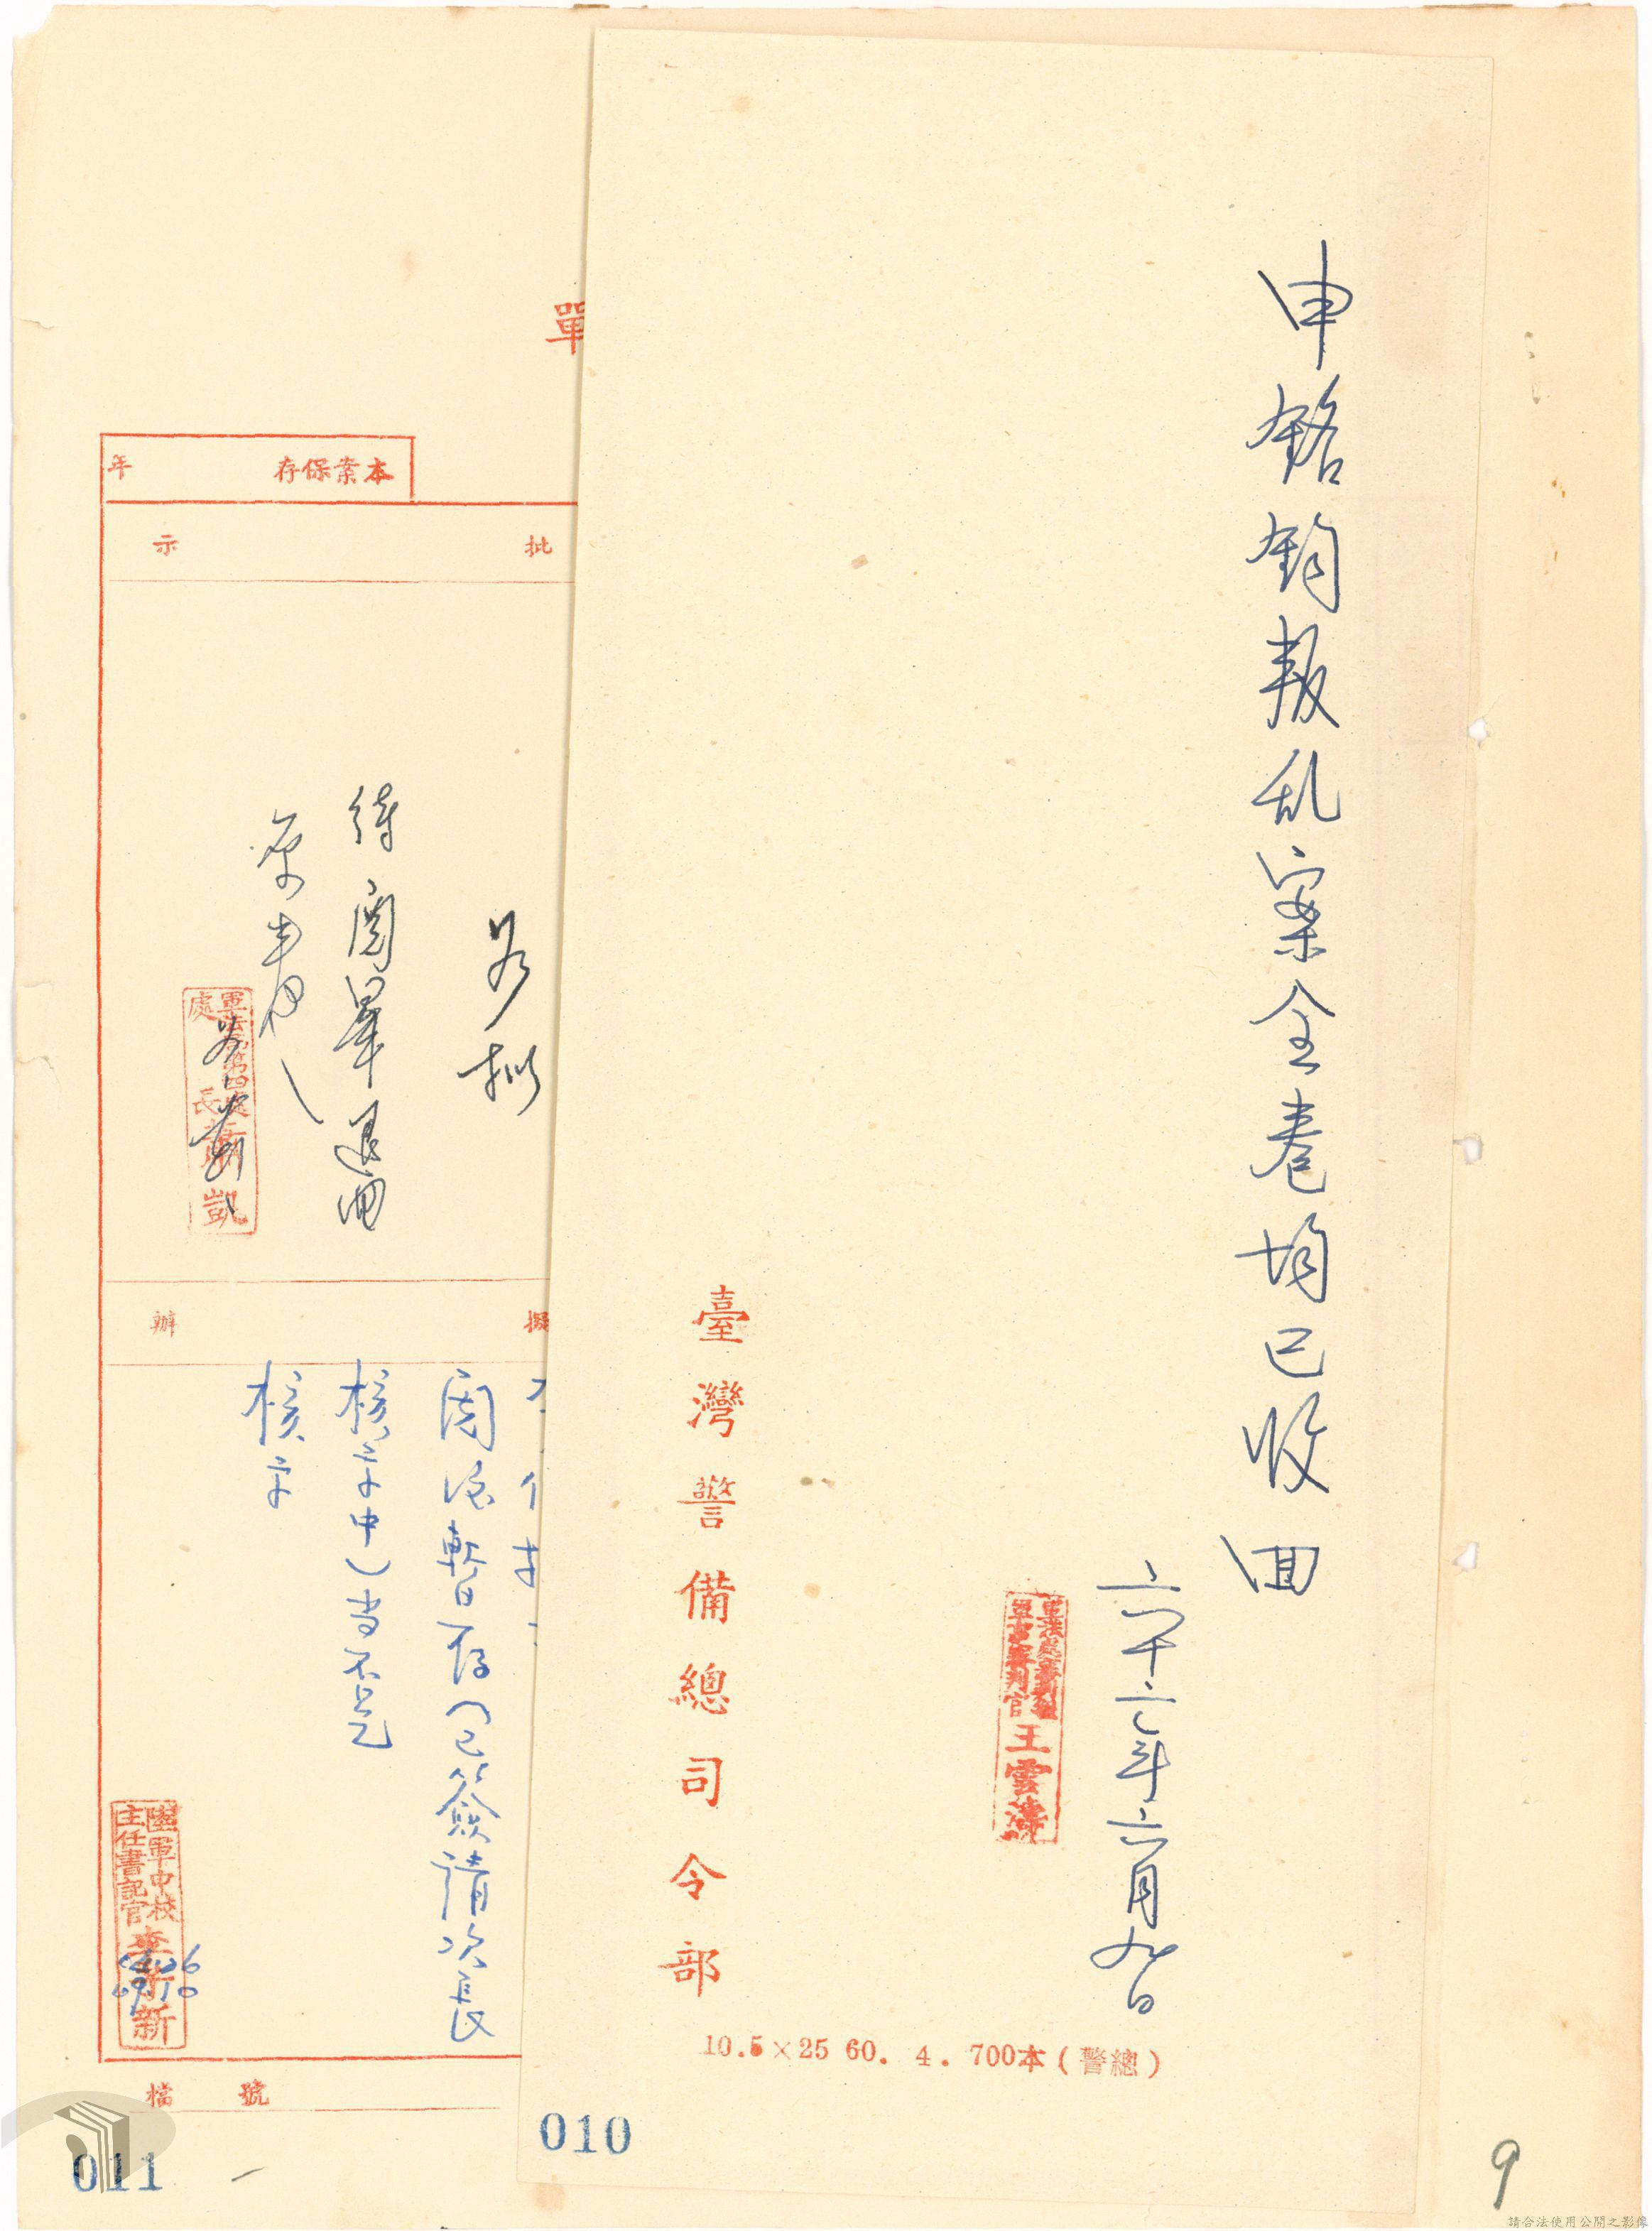 申銘鈞叛乱案全卷均已收回
六十六年六月九日
軍法處審判組
軍事審判官
王雲濤
臺灣警備總司令部
10.5×25 60. 4. 700本(警總)
010
單
本案保存
年
批
示
若擬
待閱畢退回
軍法
處
長
凱
擬
辦
閱後暫存(已簽請次長
核示中)當否乞
核示
陸軍中校
主任書記官
李新
0910
檔
號
011
9
請合法使用公開之影像